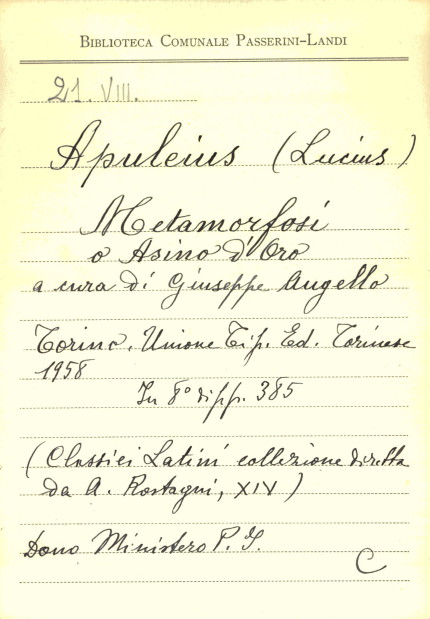 BIBLIOTECA COMUNALE PASSERINI-LANDI
21. VIII.
Apuleius (Lucius)
Metamorfosi
o Asino d'Oro
a cura di Giuseppe Augello
Torino. Unione Tip. Ed. Torinese
1958
In 8° di pp. 385
(Classici Latini collezione diretta
da A. Rostagni, XIV)
Dono Ministero P. I.
C